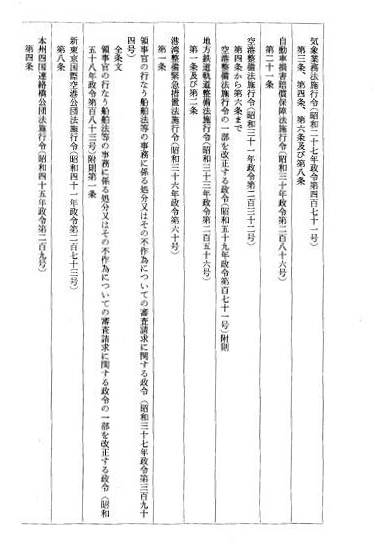 気象業務法施行令(昭和二十七年政令第四百七十一号)
第三条、第四条、第六条及び第八条
自動車損害賠償保障法施行令(昭和三十年政令第二百八十六号)
第二十一条
空港整備法施行令(昭和三十一年政令第二百三十二号)
第四条から第六条まで
空港整備法施行令の一部を改正する政令(昭和五十九年政令第百七十一号)附則
地方鉄道軌道整備法施行令(昭和三十三年政令第二百五十六号)
第一条及び第二条
港湾整備緊急措置法施行令(昭和三十六年政令第六十号)
第一条
領事官の行なう船舶法等の事務に係る処分又はその不作為についての審査請求に関する政令(昭和三十七年政令第三百九十
四号)
全条文
領事官の行なう船舶法等の事務に係る処分又はその不作為についての審査請求に関する政令の一部を改正する政令(昭和
五十八年政令第百八十三号)附則第一条
新東京国際空港公団法施行令(昭和四十一年政令第二百七十三号)
第八条
本州四国連絡橋公団法施行令(昭和四十五年政令第二百九号)
第四条